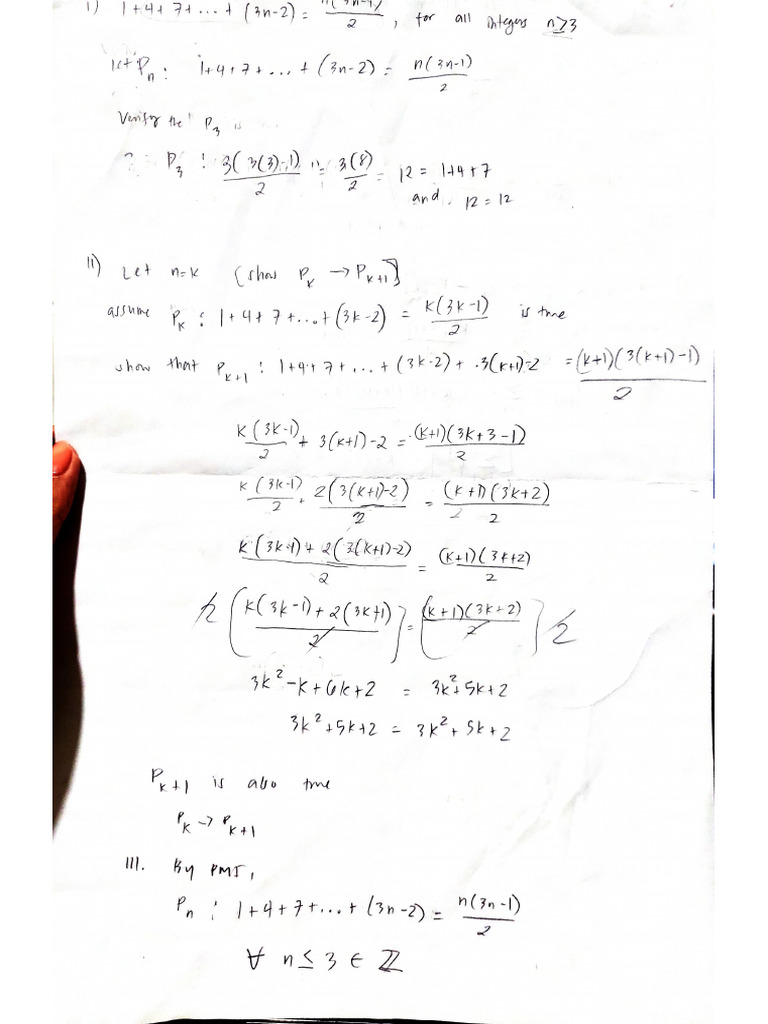 1) 1+4+7+...+(3n-2) = n(3n-1)/2, for all integers n≥3
Let Pn: 1+4+7+...+(3n-2) = n(3n-1)/2
Verify the P3 is
P3: 3(3(3)-1)/2 = 3(8)/2 = 12 = 1+4+7
and 12 = 12
II) Let n=k (show Pk → Pk+1)
assume Pk: 1+4+7+...+(3k-2) = k(3k-1)/2 is true
show that Pk+1: 1+4+7+...+(3k-2)+3(k+1)-2 = (k+1)(3(k+1)-1)/2
k(3k-1)/2 + 3(k+1)-2 = (k+1)(3k+3-1)/2
k(3k-1)/2 + 2(3(k+1)-2)/2 = (k+1)(3k+2)/2
k(3k-1)+2(3(k+1)-2)/2 = (k+1)(3k+2)/2
2(k(3k-1)+2(3k+1)/2) = ((k+1)(3k+2)/2)2
3k²-k+6k+2 = 3k²+5k+2
3k²+5k+2 = 3k²+5k+2
Pk+1 is also true
Pk → Pk+1
III. By PMI,
Pn: 1+4+7+...+(3n-2) = n(3n-1)/2
∀ n ≤ 3 ∈ ℤ